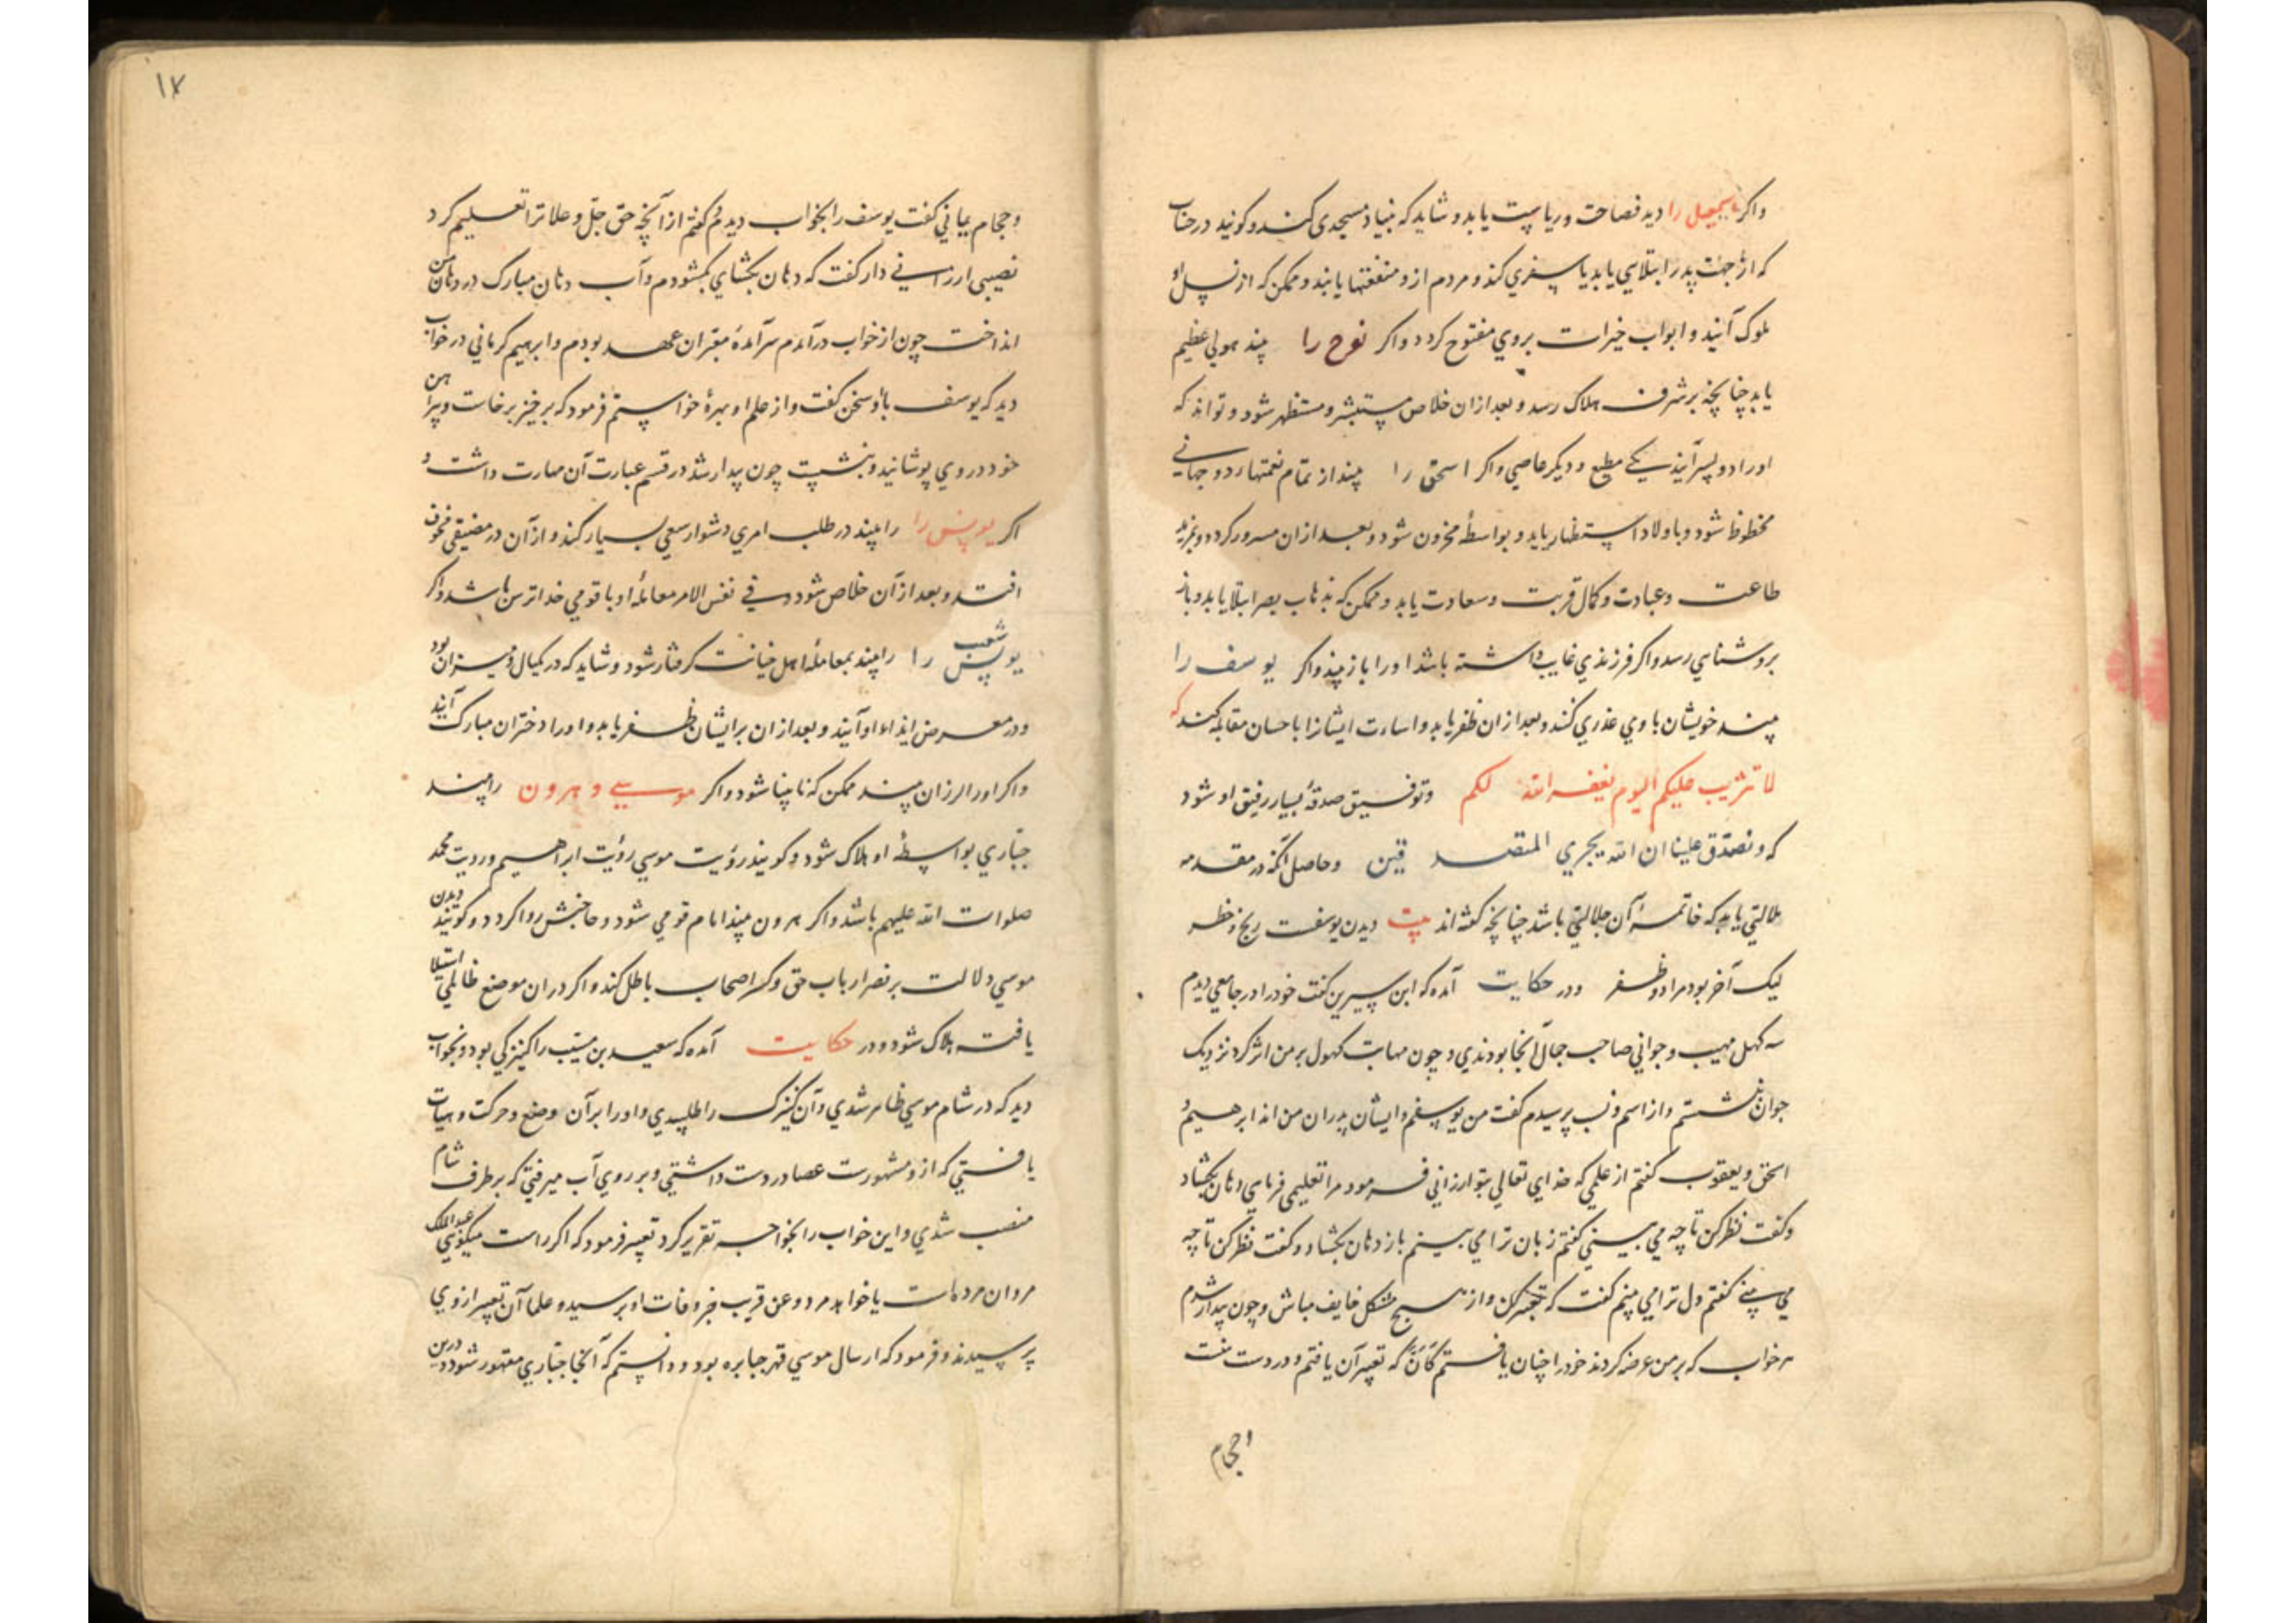 واکر اسمعیل را دید فصاحت و ریاست یابد و شاید که بنیاد مسجدی کند و کویند در حساب
که از جهت پدر ابتلایی یابد یا سفری کند و مردم ازو منفعتها یابند و ممکن که از نسل او
ملوک آیند و ابواب خیرات بروی مفتوح کردد واکر نوح را بیند هولی عظیم
یابد چنانچه بر شرف هلاک رسد و بعد ازان خلاص مستبشر و مستظهر شود و تواند که
اورا دو پسر آیند یکی مطیع و دیکر عاصی واکر اسحق را بیند از تمام نعمتهاء دو جهانی
محظوظ شود و باولاد استظهار یابد و بواسطهٔ محزون شود و بعد ازان مسرور کردد و بمزید
طاعت و عبادت و کمال قربت و سعادت یابد و ممکن که بذهاب بصر ابتلا یابد و باز
بروشنایی رسد واکر فرزندی غایب داشته باشد اورا باز بیند واکر یوسف را
بیند خویشان با وی غدری کنند و بعد ازان ظفر یابد و اساءت ایشانرا با حسان مقابله کند که
لا تثریب علیکم الیوم یغفر الله لکم و توفیق صدقهٔ بسیار رفیق او شود
که و تصدق علینا ان الله یجزی المتصدقین و حاصل آنکه در مقدمه
ملالتی یابد که خاتمهٔ آن جلالتی باشد چنانچه کفته اند بیت دیدن یوسفت رنج و خطر
لیک آخر بود مراد و ظفر و در حکایت آمده که ابن سیرین کفت خود را در جامعی دیدم
سه کهل مهیب و جوانی صاحب جمال آنجا بودندی و چون مهابت کهول بر من اثر کرد نزدیک
جوان نشستم و از اسم و نسب پرسیدم کفت من یوسفم و ایشان پدران من اند ابرهیم و
اسحق و یعقوب کفتم از علمی که خدای تعالی بتو ارزانی فرمود مرا تعلیمی فرمای دهان بکشاد
و کفت نظر کن تا چه می بینی کفتم زبان ترا می بینم باز دهان بکشاد و کفت نظر کن تا چه
می بینی کفتم دل ترا می بینم کفت که تعبیر کن و از هیچ مشکل خایف مباش و چون بیدار شدم
هر خواب که بر من عرضه کردند خود را چنان یافتم کان که تعبیر آن یافتم و در دست منست
و حجام یمانی کفت یوسف را بخواب دیدم کفتم از آنچه حق جل و علا ترا تعلیم کرد
نصیبی ارزانی دار کفت که دهان بکشای بکشودم و آب دهان مبارک در دهان من
انداخت چون از خواب در آمدم سرآمدهٔ معبران عهد بودم و ابرهیم کرمانی در خواب
دید که یوسف با او سخن کفت و از علم او بهرهٔ خواستم فرمود که برخیز برخاست و پیراهن
خود در وی پوشانید و بنشست چون بیدار شد در قسم عبارت آن مهارت داشت و
اکر یونس را را بیند در طلب امری دشوار سعی بسیار کند و از آن در مضیقی مخوف
افتد و بعد از آن خلاص شود و فی نفس الامر معامله او با قومی خداترس باشد واکر
یونس شعیب را را بیند بمعاملهٔ اهل خیانت کرفتار شود و شاید که در کیال و میزان بود
و در معرض ایذاء او آیند و بعد ازان بر ایشان ظفر یابد و او را دختران مبارک آیند
واکر اورا لرزان بیند ممکن که نابینا شود واکر موسی و هرون را بیند
جباری بواسطهٔ او هلاک شود و کویند رؤیت موسی رؤیت ابراهیم و رؤیت محمد
صلوات الله علیهم باشد واکر هرون بیند امام قومی شود و حاجتش روا کردد و کویند دیدن
موسی دلالت بر نصر ارباب حق و کسر اصحاب باطل کند واکر در ان موضع ظالمی استیلا
یافته هلاک شود و در حکایت آمده که سعید بن مسیب را کنیزکی بود و بخواب
دید که در شام موسی ظاهر شدی و آن کنیزک را طلبیدی و او را بر آن وضع و حرکت و هیات
یافتی که ازو مشهورست عصا در دست داشتی و بر روی آب میرفتی که بر طرف شام
منصب شدی و این خواب را بخواجه تقریر کرد تعبیر فرمود که اکر راست میکویی عبد الملک
مروان مرده است یا خواهد مرد و عن قریب خبر وفات او برسید و علما آن تعبیر از وی
پرسیدند و فرمود که ارسال موسی قهر جبابره بود و دانستم که آنجا جباری مقهور شود و درین